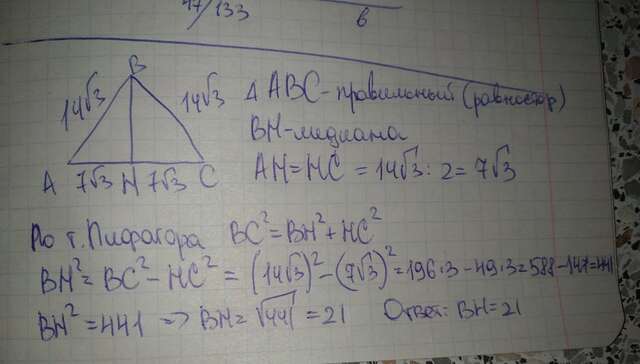 47/133
6
B
14√3
14√3
A 7√3 H 7√3 C
Δ ABC - правильный (равностор)
BH - медиана
AH = HC = 14√3 : 2 = 7√3
По т. Пифагора BC² = BH² + HC²
BH² = BC² - HC² = (14√3)² - (7√3)² = 196·3 - 49·3 = 588 - 147 = 441
BH² = 441 => BH = √441 = 21 Ответ: BH = 21